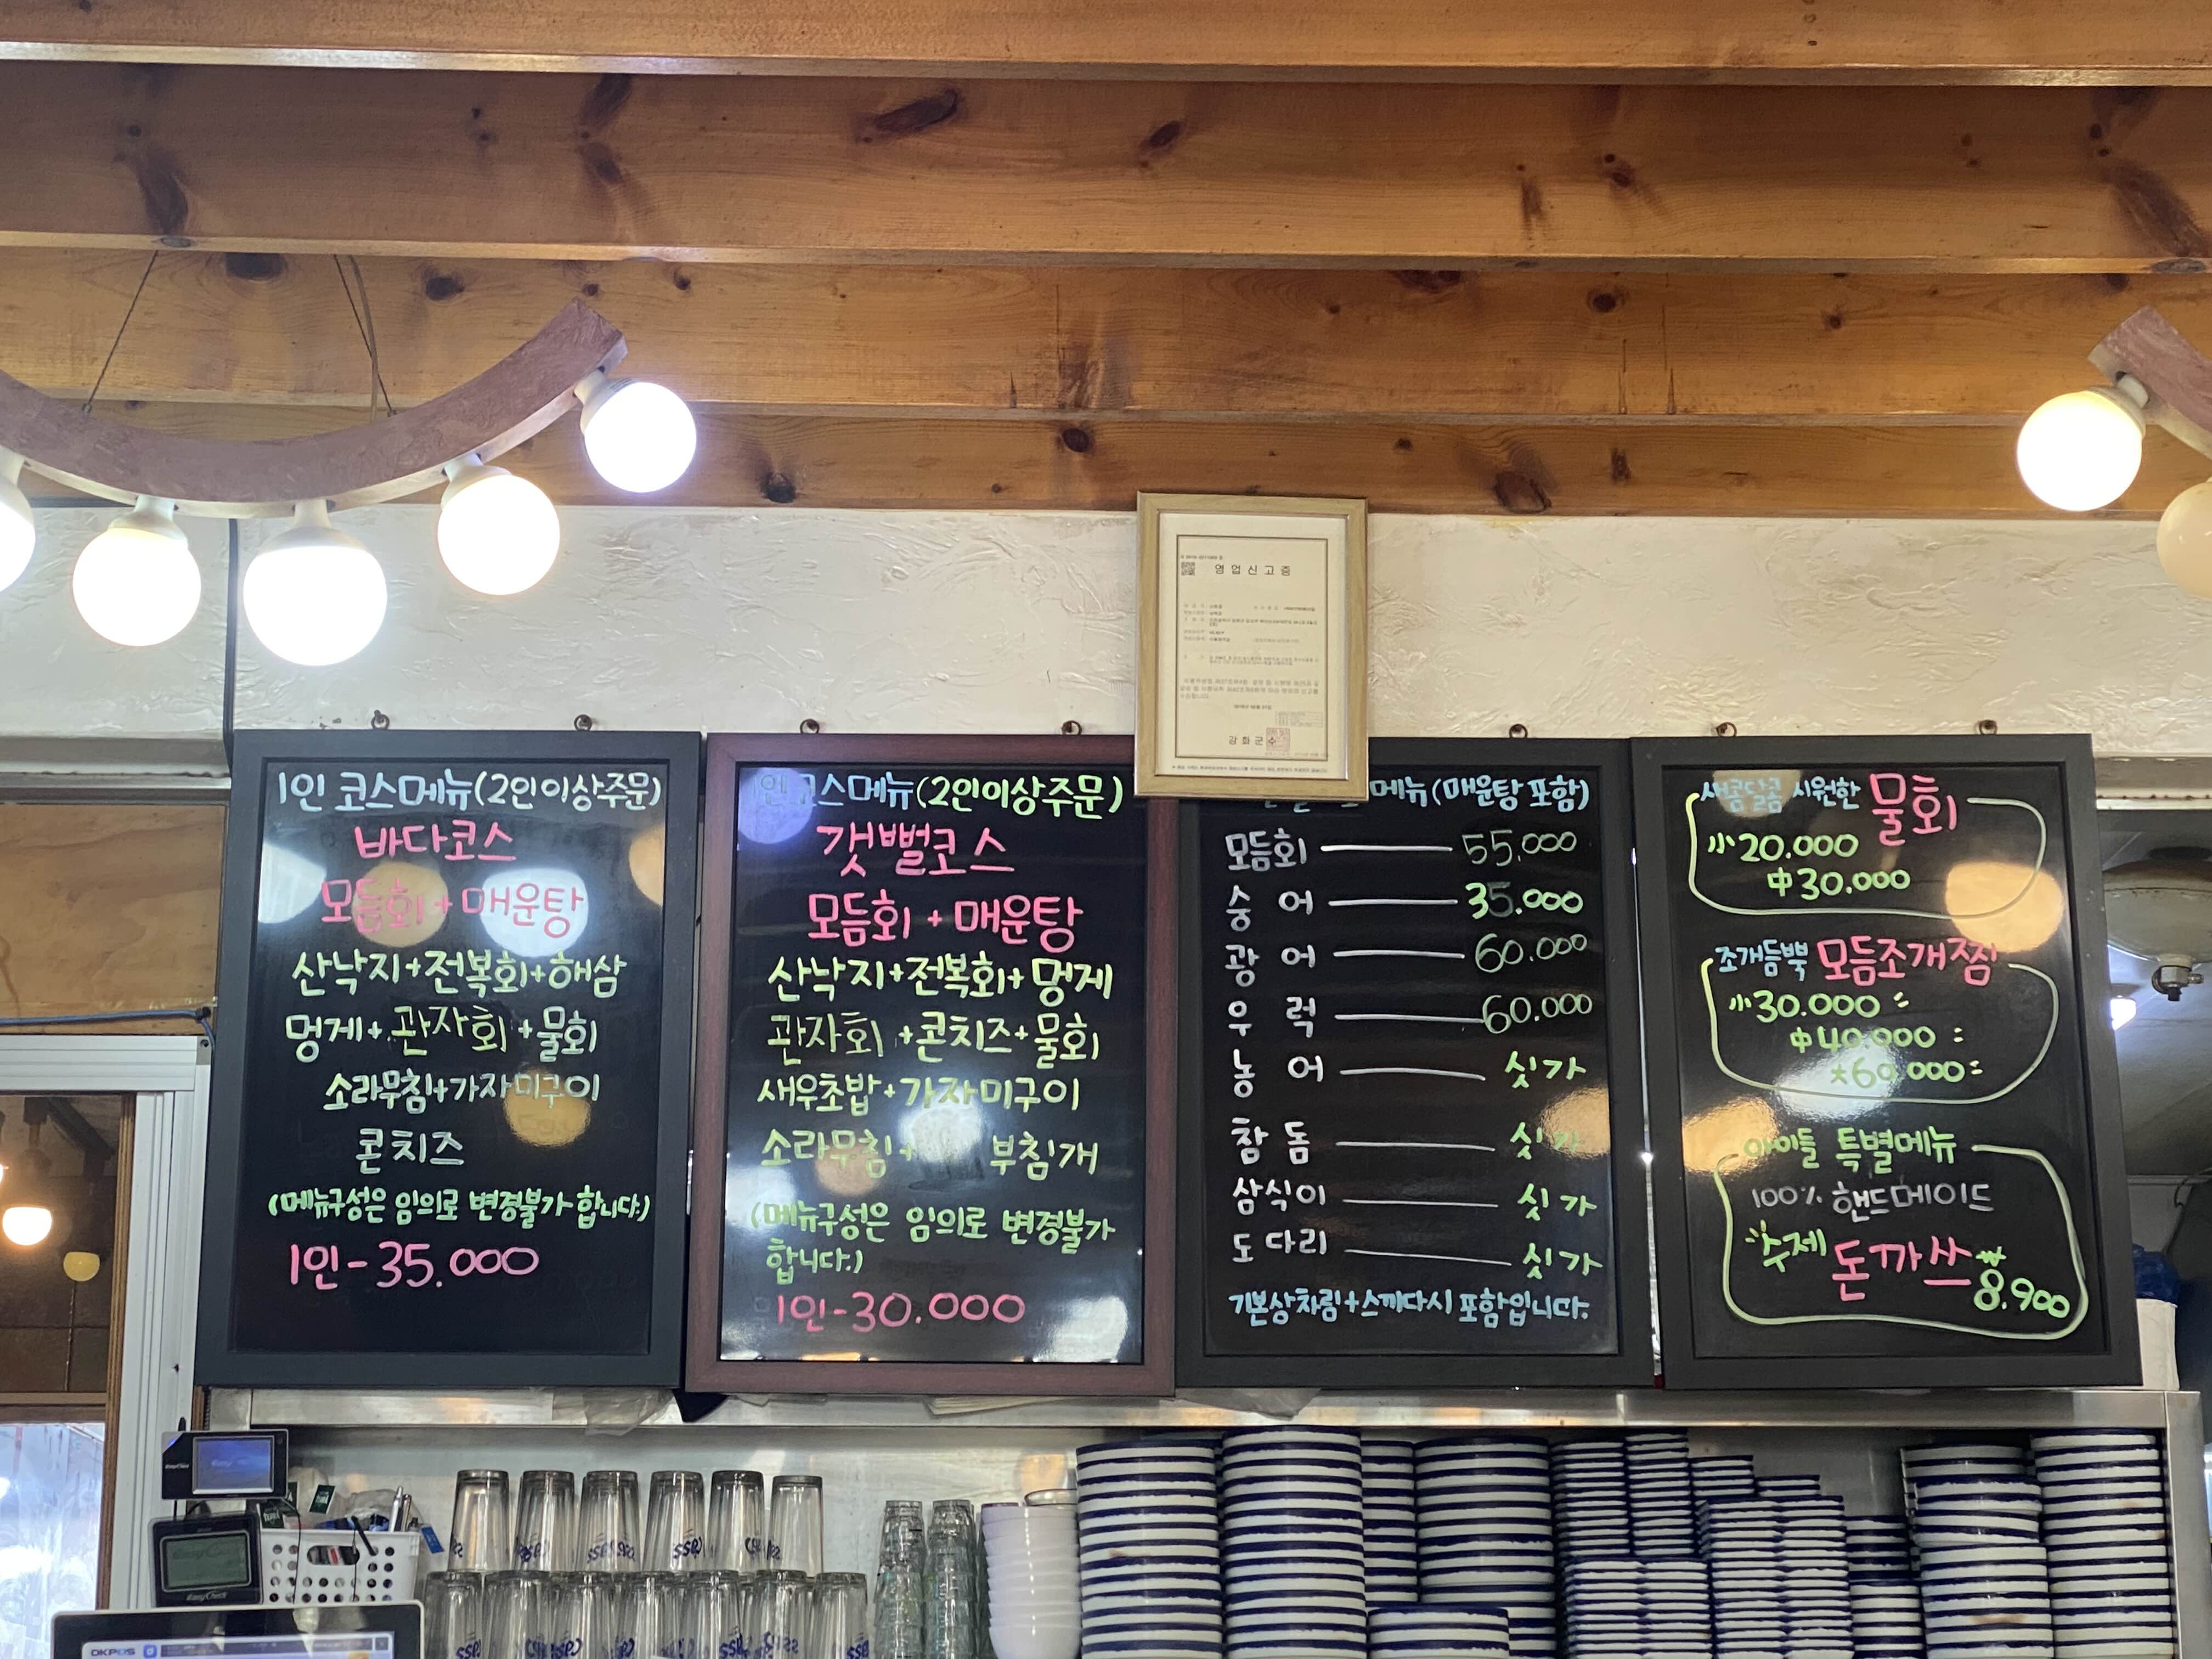 영업신고증
강화군수
1인 코스메뉴(2인이상주문)
바다코스
모듬회+매운탕
산낙지+전복회+해삼
멍게+관자회+물회
소라무침+가자미구이
콘치즈
(메뉴구성은 임의로 변경불가합니다.)
1인-35.000
1인 코스메뉴(2인이상주문)
갯뻘코스
모듬회+매운탕
산낙지+전복회+멍게
관자회+콘치즈+물회
새우초밥+가자미구이
소라무침+ 부침개
(메뉴구성은 임의로 변경불가
합니다.)
1인-30.000
메뉴(매운탕 포함)
모듬회 55,000
숭어 35.000
광어 60.000
우럭 60.000
농어 싯가
참돔 싯가
삼식이 싯가
도다리 싯가
기본상차림+스끼다시 포함입니다.
새콤달콤 시원한 물회
小20.000
中30.000
조개듬뿍 모듬조개찜
小30.000
中40.000
大60.000
아이들 특별메뉴
100% 핸드메이드
수제 돈까쓰 ₩8.900
EasyCheck
OKPOS
Cass